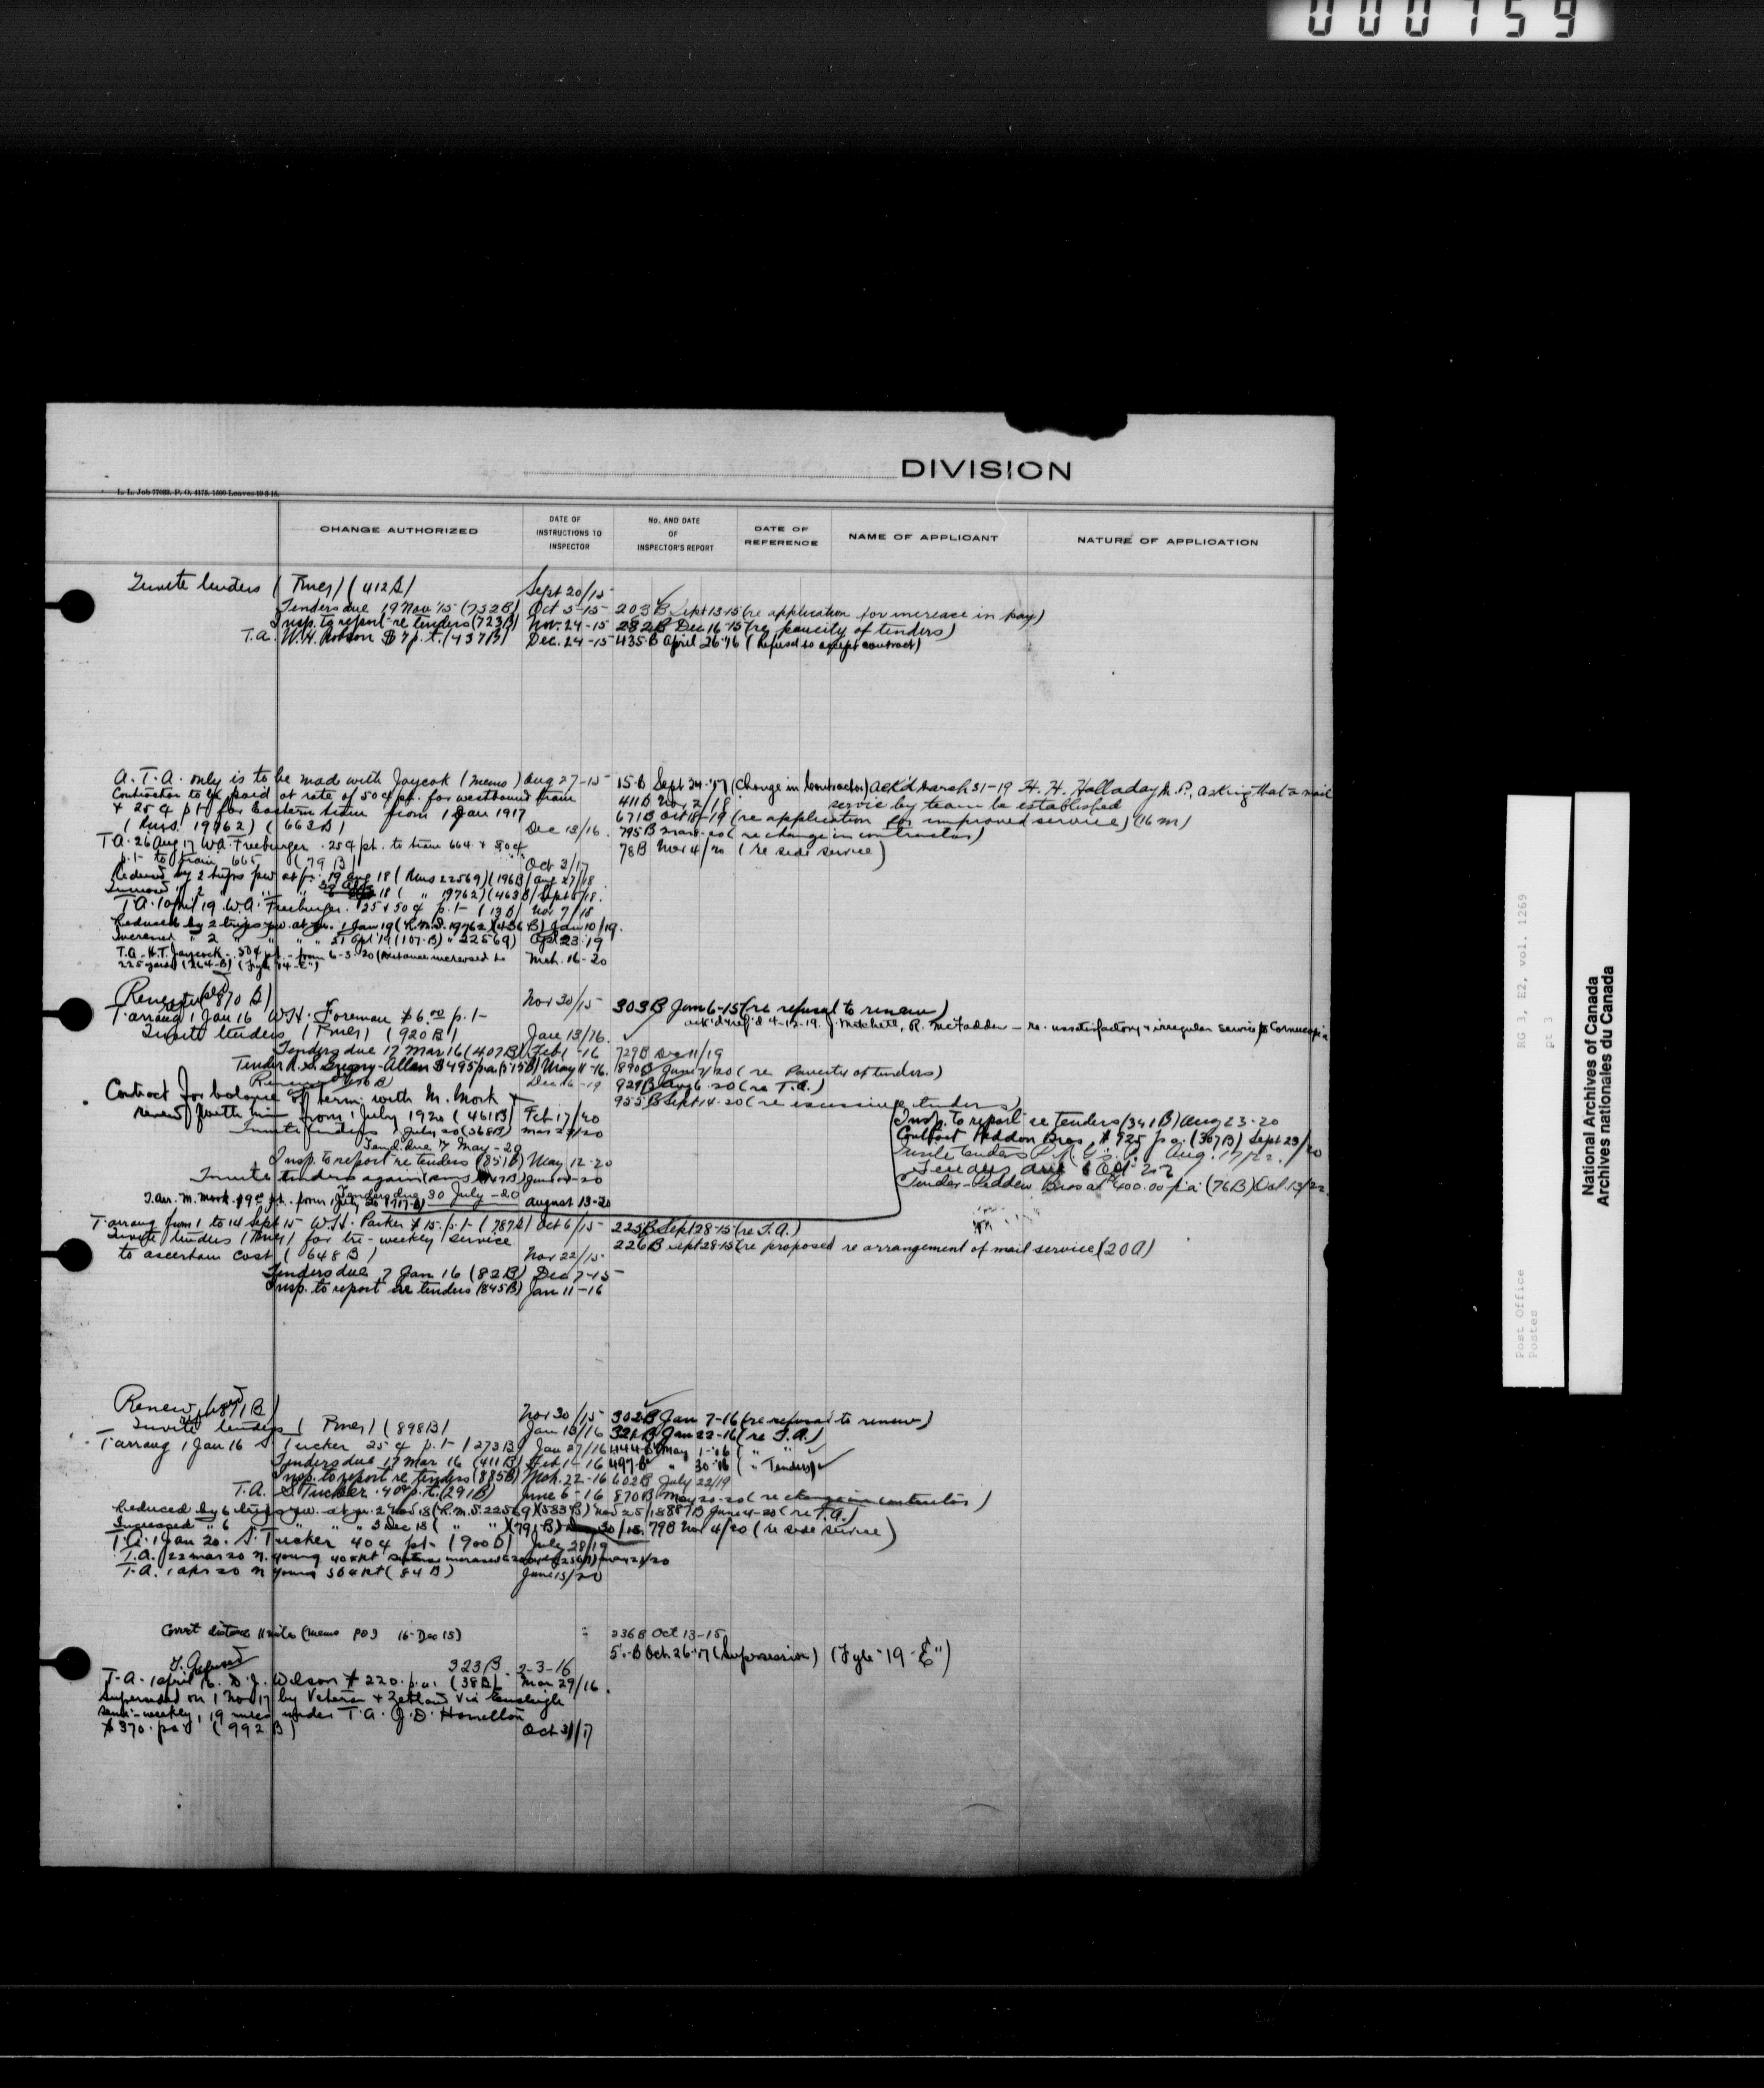 000759
DIVISION
L. L. Job 77093. P. O. 4175. 1500 Leaves 19-5-15.
CHANGE AUTHORIZED
DATE OF INSTRUCTIONS TO INSPECTOR
No. AND DATE OF INSPECTOR'S REPORT
DATE OF REFERENCE
NAME OF APPLICANT
NATURE OF APPLICATION
Invite tenders (Rmer) (412A) Sept 20/15
Tenders due 19 Nov '15 (752B) Oct 5-15 203B Sept 13-15 (re application for increase in pay)
Insp. to report re tenders (723B) Nov. 24-15 282B Dec 16-15 (re paucity of tenders)
T.A. W.H. Robson $7 p.t. (437B) Dec. 24-15 435B April 26-'16 (Refusal to accept contract)
A.T.A. only is to be made with Jaycock (memo) Aug 27-15 15B Sept 24-'17 (Change in Contractor) Ack'd March 31-19 H. H. Halladay M.P., asking that a mail
Contractor to be paid at rate of 50¢ pt. for westbound train 411B Nov 2/18 service by team be established
& 25¢ pt for Eastern train from 1 Jan 1917 671B Oct 18-19 (re application for improved service) (16m)
(Rms. 19762) (663B) Dec 13/16. 795B Mar 8-20 (re change in contractor)
T.A. 26 Aug 17 W.A. Freeburger 25¢ pt. to train 664 & 50¢ 78B Nov 4/20 (re side service)
p.t. to train 665 (79B) Oct 3/17
Reduced by 2 trips pw at fr. 19 Aug 18 (Rms 22569) (196B) Aug 27/18
Increased " 2 " " " 18 ( " 19762) (463B) Sept 5/18.
T.A. 1 April 19 W.A. Freeburger. 25 & 50¢ p.t- (13B) Nov 7/18
Reduced by 2 trips pw. at fr. 1 Jan 19 (R.M.S. 19762) (436B) Jan 10/19.
Increased " 2 " " " 21 Apl '19 (107-B) " 22569) Apl 23-19
T.A. H.T. Jaycock - 50¢ pt. - from 6-3-20 (distance increased to Mch. 16-20
225 yards) (264-B) (Fyle "14-E")
Renew (870B) Nov 30/15 303B Jan 6-15 (re refusal to renew)
T arrang 1 Jan 16 W.H. Foreman $6.00 p.t- ack'd & ref'd 4-12-19. J. Mitchell, R. McFadden - re. unsatisfactory & irregular service to Cornucopia
Invite tenders (Rmer) (920B) Jan 13/16.
Tenders due 17 Mar 16 (407B) Feb 1-16 729B Dec 11/19
Tender R.S. Gregory-Allan $495 pa May 11-16. 890B June 7/20 (re Paucity of tenders)
Dec 16-19 929B Aug 6-20 (re T.A.)
Contract for balance of term with M. Mork & 955B Sept 14-20 (re excessive tenders)
renew with him from 1 July 1920 (461B) Feb 17/20
Invite tenders 1 July 20 (368B) Mar 29/20
Tend. due 7 May-20
Insp. to report re tenders (851B) May 12-20
Invite tenders again June -20
Tenders due 30 July-20
T. arr. M. Mork $9.00 pt. from 1 July 20 (717B) August 13-20
Insp. to report re tenders (341B) Aug 23-20
Contract Peddon Bros $925 p.a. (367B) Sept 29/20
Invite tenders Aug. 17/22.
Tenders due 6 Oct 22
Tender - Peddon Bros at $400.00 p.a. (76B) Oct. 13/22.
T arrang from 1 to 14 Sept 15 W.H. Parker $15. p.t- (787A) Oct 6/15 225B Sept 28-15 (re T.A.)
Invite tenders (Rmer) for tri-weekly service 226B Sept 28-15 (re proposed re arrangement of mail service) (20A)
to ascertain cost (648B) Nov 22/15
Tenders due 7 Jan 16 (82B) Dec 7-15
Insp. to report re tenders (845B) Jan 11-16
Renew (871B) Nov 30/15 302B Jan 7-16 (re refusal to renew)
Invite tenders (Rmer) (898B) Jan 13/16 321B Jan 22-16 (re T.A.)
T arrang 1 Jan 16 S Tucker 25¢ p.t- (273B) Jan 27/16 444B May 1-'16 ( " " )
Tenders due 17 Mar 16 (411B) Feb 1-16 497B " 30-'16 ( " Tenders)
Insp. to report re tenders (885B) Mch. 22-16 602B July 22/19
T.A. S Tucker 40¢ p.t. (291B) June 6-16 870B May 20-20 (re change in contractor)
Reduced by 6 trips pw. at fr. 2 Nov 18 (R.M.S. 22569) (583B) Nov 25/18 887B June 4-20 (re T.A.)
Increased " 6 " " " 3 Dec 18 ( " " ) (791-B) 30/18. 79B Nov 4/20 (re side service)
T.A. 1 Jan 20. S. Tucker 40¢ pt- (900B) July 28/19
T.A. 22 Mar 20 N. Young 40¢ pt distance increased
T.A. 1 Apr 20 N Young 50¢ pt (84B) June 15/20
Correct distance 11 miles (memo POJ 16-Dec 15) 236B Oct 13-15
5-B Oct 26-'17 (Supersession) (Fyle "19-E")
T. Refused 323B 2-3-16
T.A. 1 April 16. D.J. Wilson $220. p.a. (38B) Mar 29/16.
Superseded on 1 Nov 17 by Veteran & Zetland via
semi-weekly, 19 miles under T.A. J.D. Hamilton
$370. pa (992B) Oct 31/17
Post Office
Postes
RG 3, E2, vol. 1269
pt 3
National Archives of Canada
Archives nationales du Canada